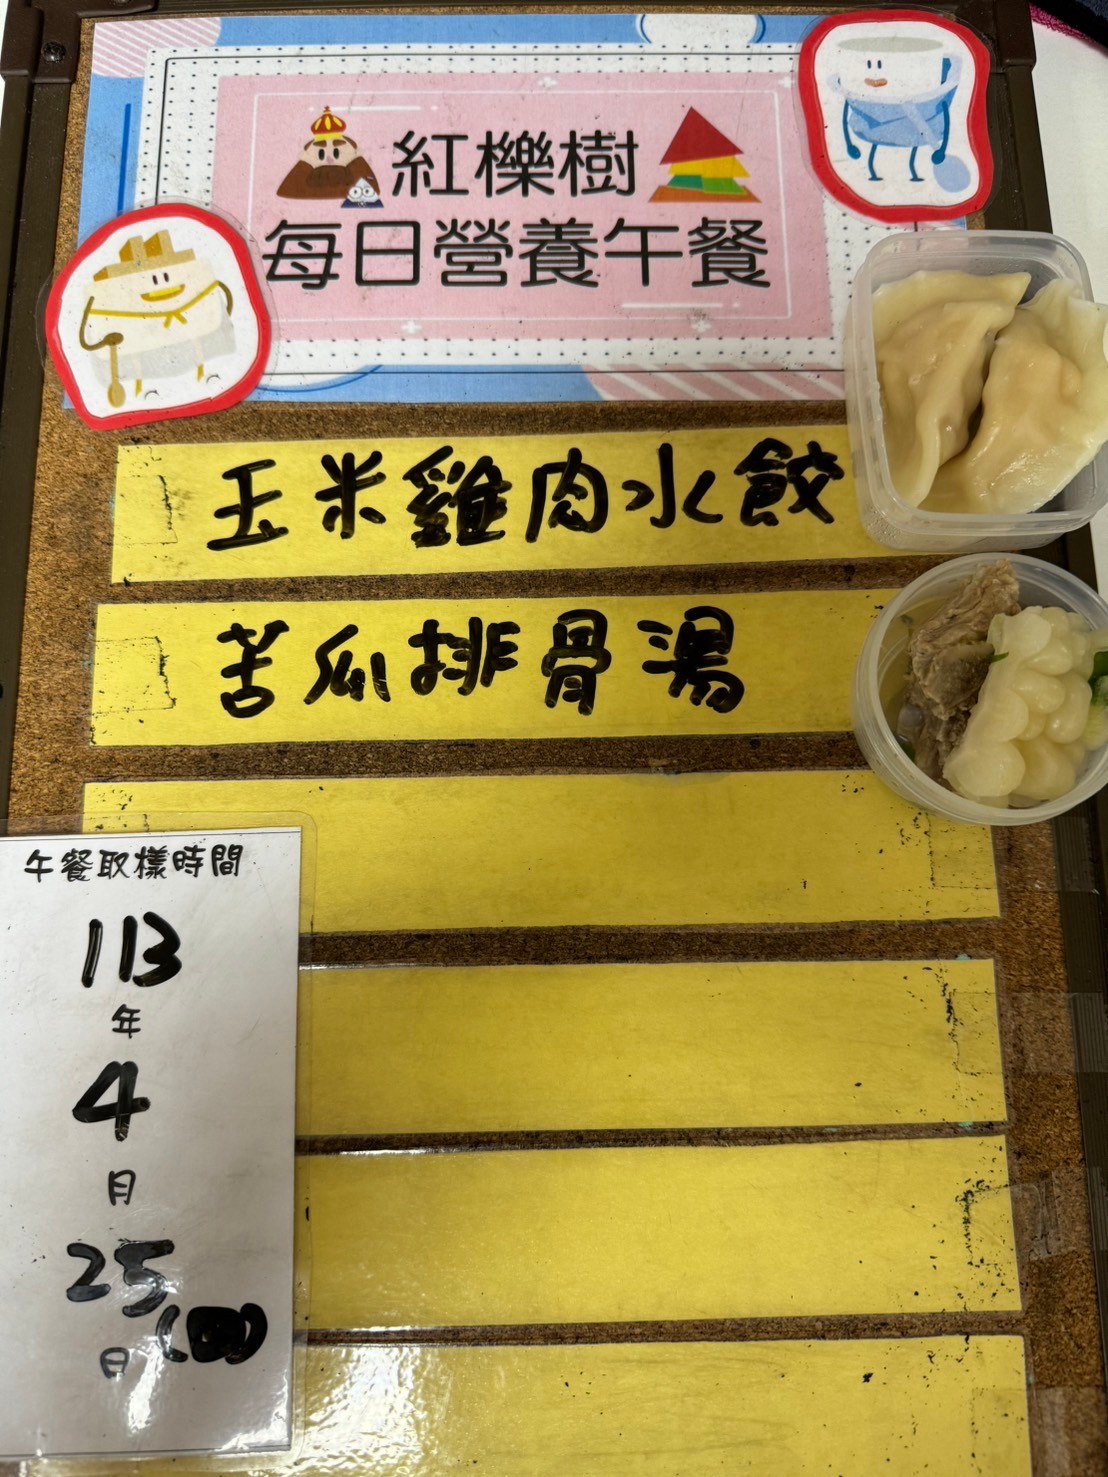 紅櫟樹
每日營養午餐
玉米雞肉水餃
苦瓜排骨湯
午餐取樣時間
113
年
4
月
25
(四)
日